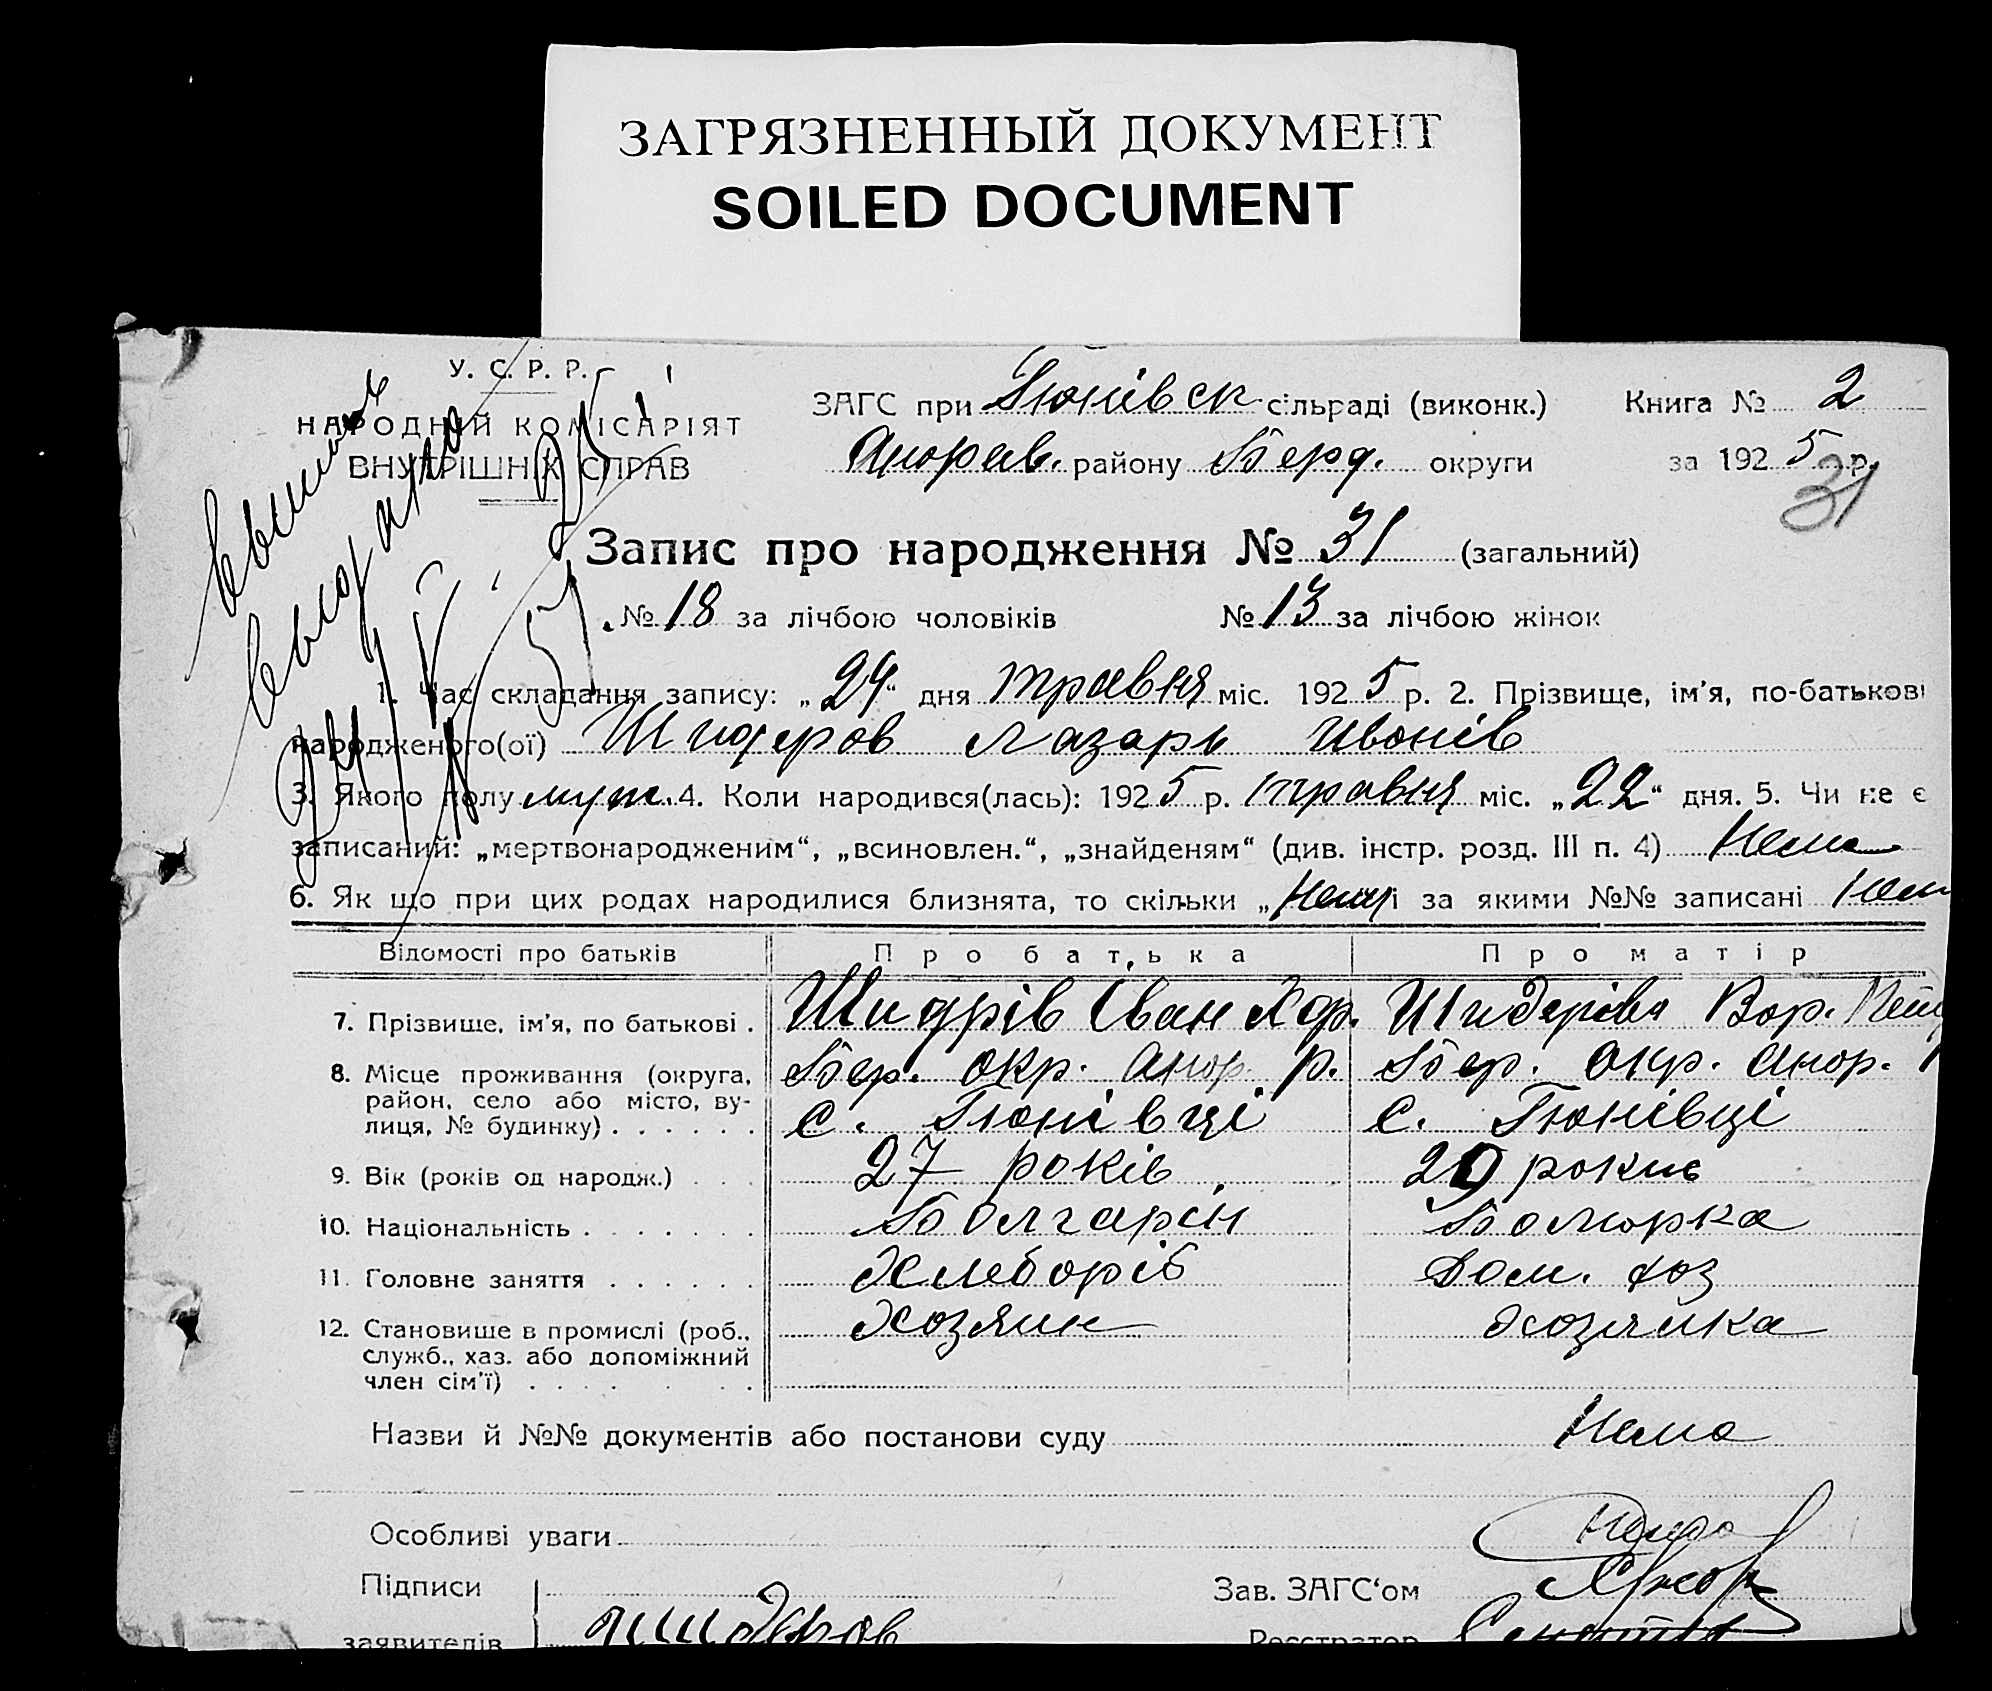 ЗАГРЯЗНЕННЫЙ ДОКУМЕНТ
SOILED DOCUMENT
У. С. Р. Р.
НАРОДНІЙ КОМІСАРІЯТ
ВНУТРІШНІХ СПРАВ
ЗАГС при Гюнівск сільраді (виконк.) Книга № 2
району Берд. округи за 1925 р.
31
Запис про народження № 31 (загальний)
№ 18 за лічбою чоловіків № 13 за лічбою жінок
1. Час складання запису: „24“ дня травня міс. 1925 р. 2. Прізвище, ім’я, по-батькові
народженого(ої) Шидеров Лазарь Иванів
3. Якого полу муж. 4. Коли народився(лась): 1925 р. травня міс. „22“ дня. 5. Чи не є
записаний: „мертвонародженим“, „всиновлен.“, „знайденям“ (див. інстр. розд. III п. 4) Нема
6. Як що при цих родах народилися близнята, то скільки „ і за якими №№ записані Нем
Відомості про батьків Про батька Про матір
7. Прізвище, ім’я, по батькові . Шидрів Іван Хар. Шидеріва Вар.
8. Місце проживання (округа, Бер. окр. р. Бер. окр.
район, село або місто, ву- с. Гюнівці с. Гюнівці
лиця, № будинку) . . . . . .
9. Вік (років од народж.) . . . 27 років 29 рокив
10. Національність . . . . . . . Болгарін Болгорка
11. Головне заняття . . . . . . Хлеборіб Дом. хоз
12. Становище в промислі (роб., Хозяин Хозяйка
служб., хаз. або допоміжний
член сім’ї) . . . . . .
Назви й №№ документів або постанови суду Нема
Особливі уваги Нема
Підписи Зав. ЗАГС‘ом
заявителів Шидеров Реєстратор